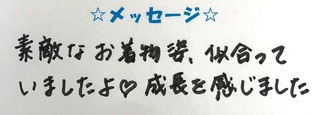 ☆メッセージ☆
素敵なお着物姿、似合って
いましたよ♡ 成長を感じました